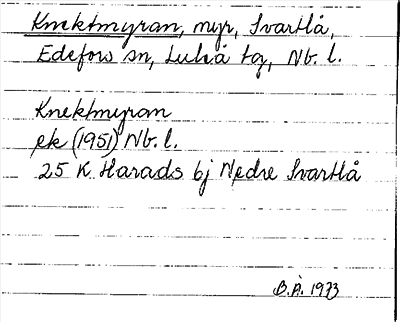 Knektmyran, myr, Svartlå,
Edefors sn, Luleå tg, Nb. l.
Knektmyran
ek (1951) Nb. l.
25 K Harads bj Nedre Svartlå
B.Å. 1973